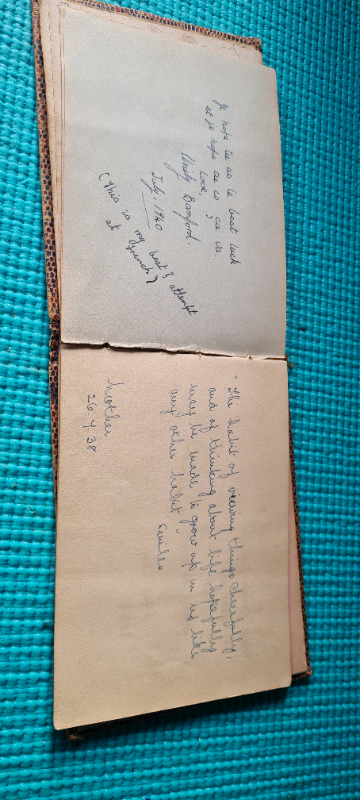 Je hope as le best luck
et je hope ca va
Love,
Bamford.
July, 1940
(This is my best attempt
at french)
"The habit of viewing things cheerfully,
and of thinking about life hopefully
may be made to grow up in us like
any other habit"
Smiles
Mother
26.4.38